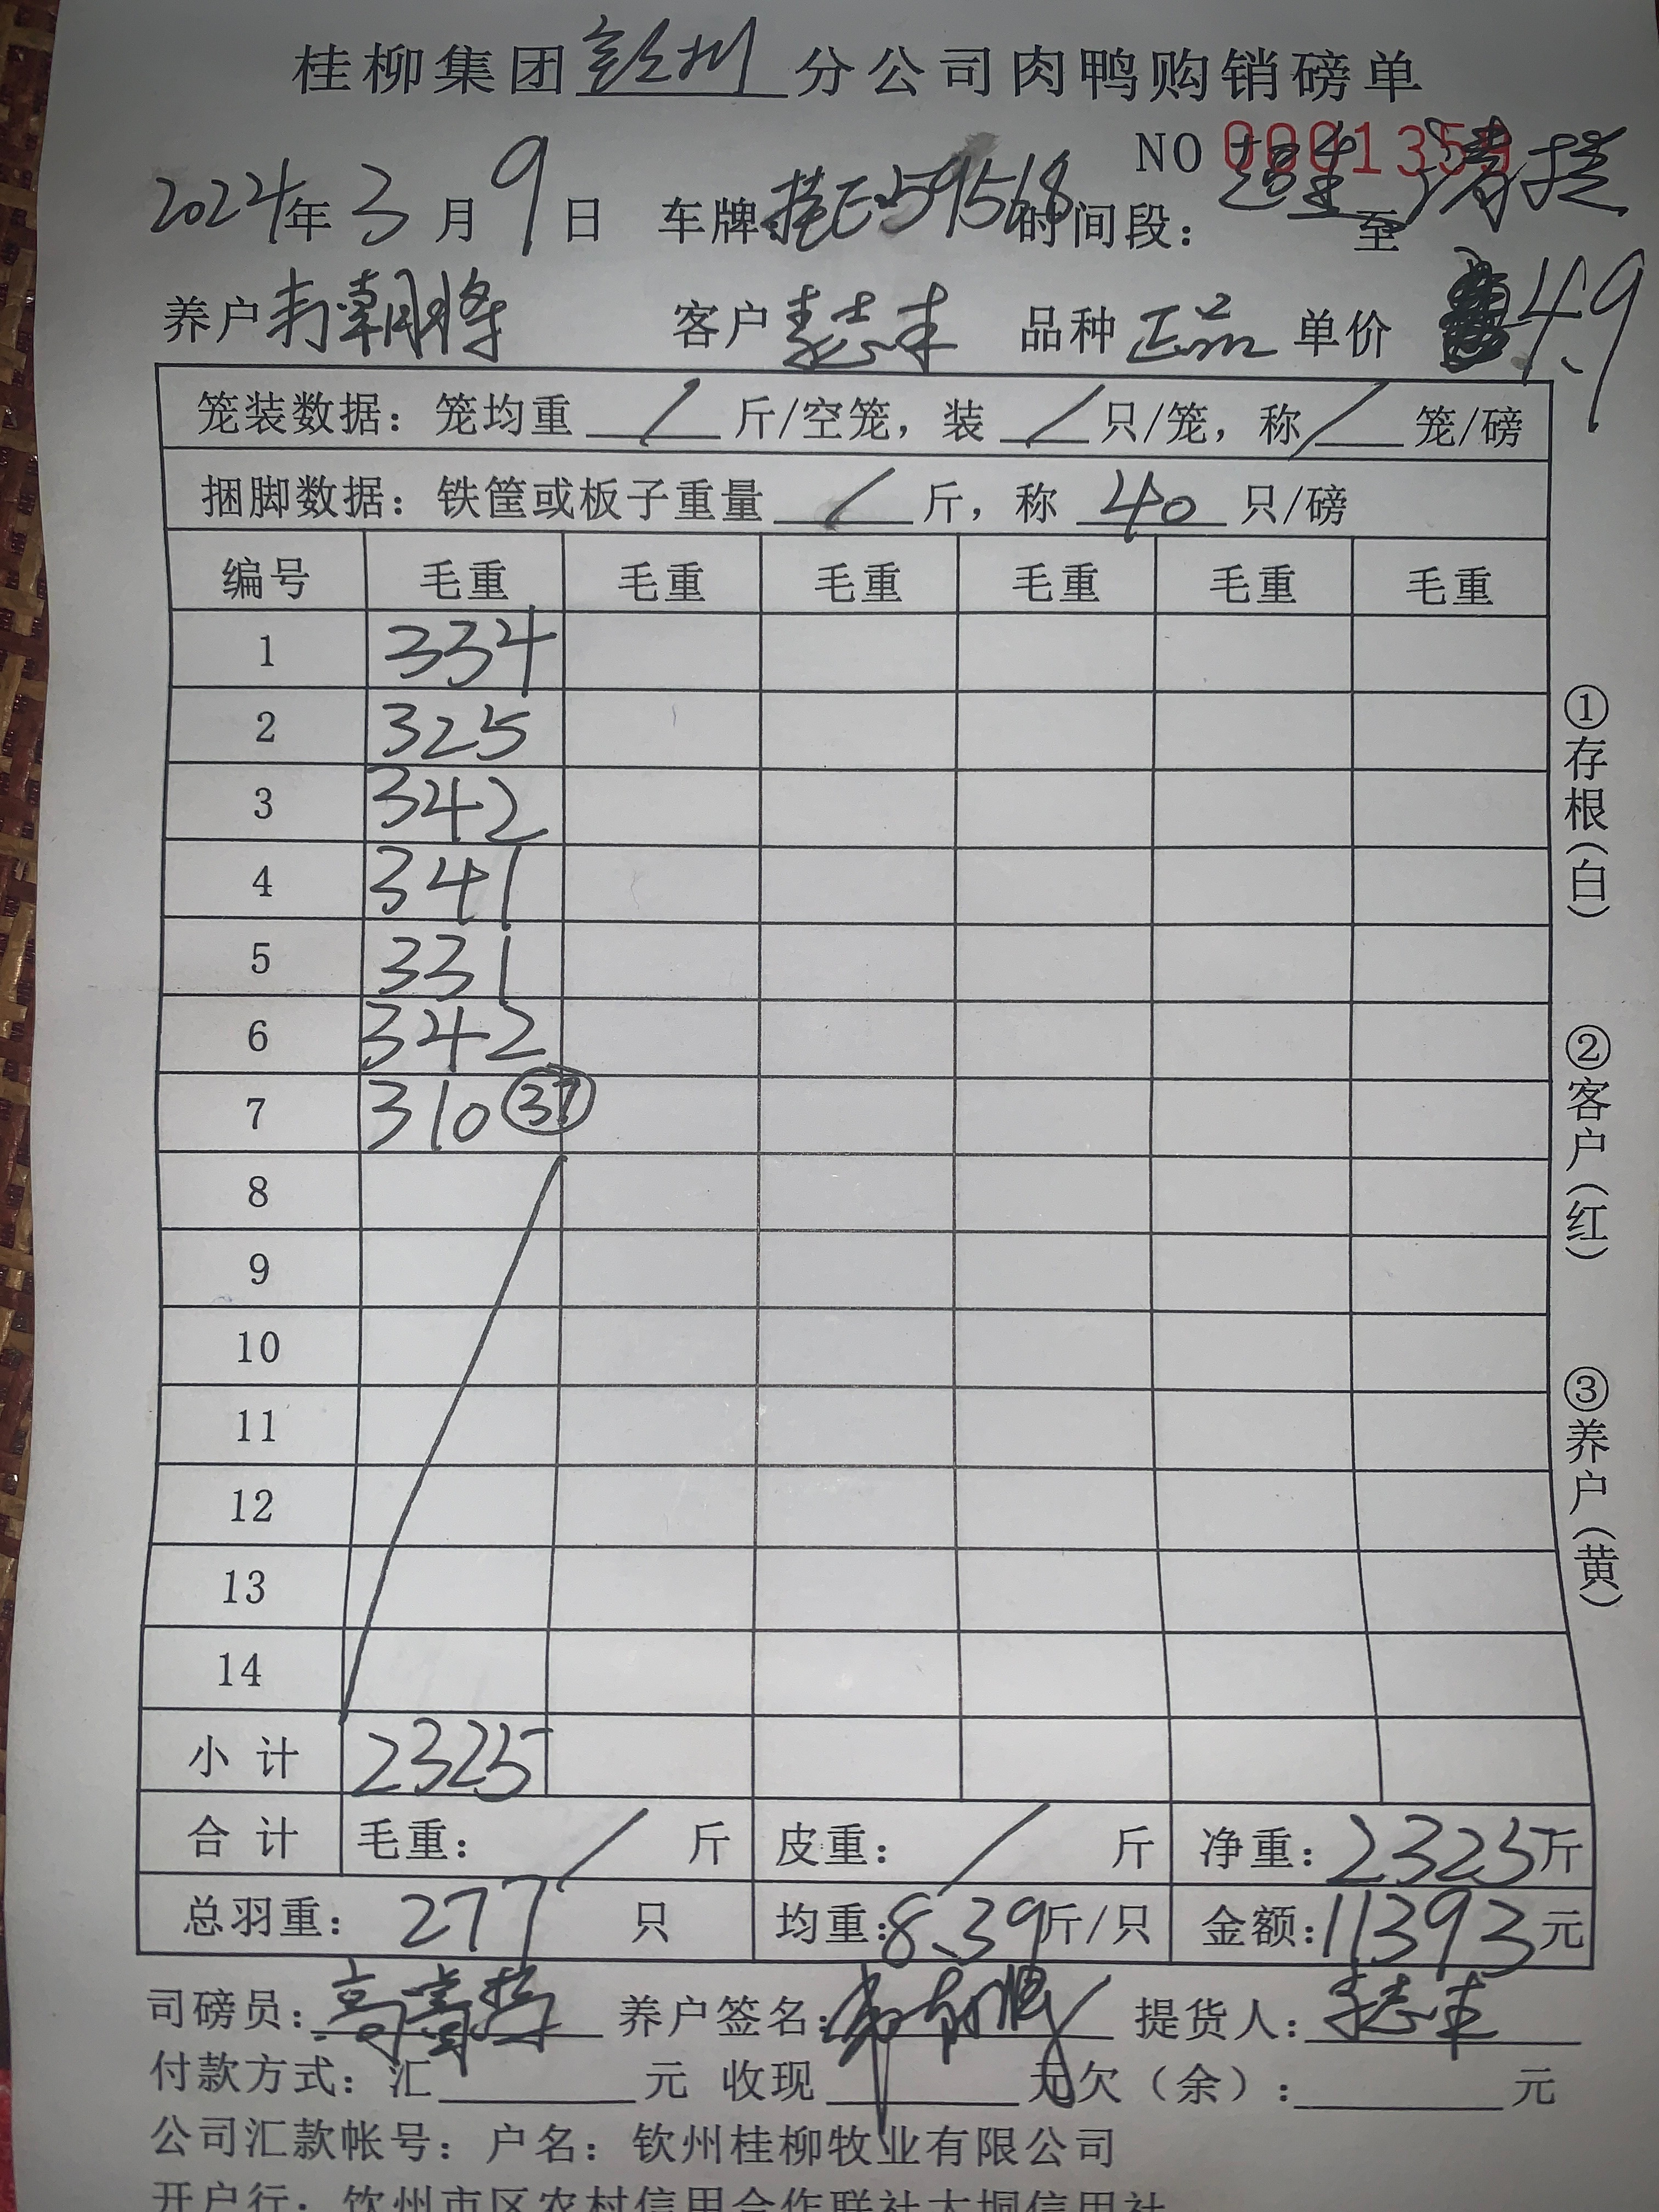 桂柳集团 分公司肉鸭购销磅单
NO 0001359
2024年3月9日 车牌: 59568 时间段: 至 清
养户 朝将 客户 李志丰 品种 正品 单价 4.9
笼装数据：笼均重 / 斤/空笼，装 / 只/笼，称 / 笼/磅
捆脚数据：铁筐或板子重量 / 斤，称 40 只/磅
编号 毛重 毛重 毛重 毛重 毛重 毛重
1 334
2 325
3 342
4 341
5 331
6 342
7 310 37
8
9
10
11
12
13
14
小计 2325
合计 毛重： / 斤 皮重： / 斤 净重：2325斤
总羽重： 277 只 均重：8.39斤/只 金额：11393元
①存根（白）
②客户（红）
③养户（黄）
司磅员： 养户签名： 提货人：李志丰
付款方式：汇 元 收现 元欠（余）： 元
公司汇款帐号：户名：钦州桂柳牧业有限公司
开户行：钦州市区农村信用合作联社大垌信用社